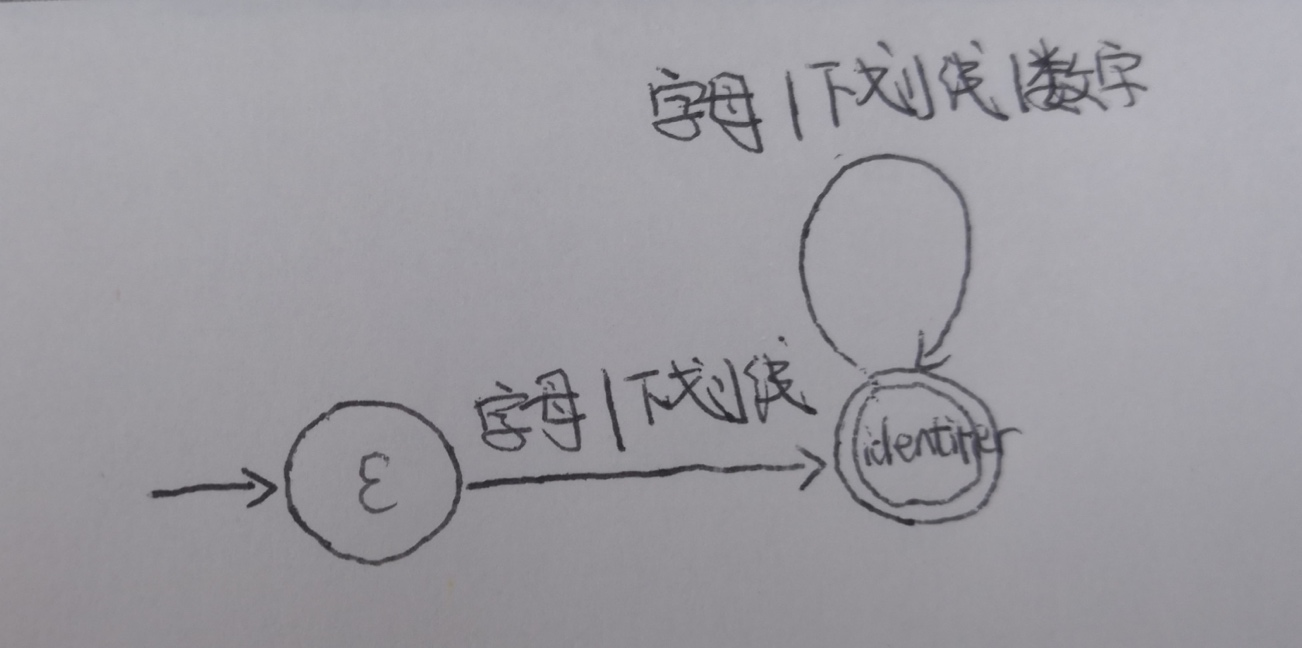 字母|下划线|数字
字母|下划线
ε
identifier